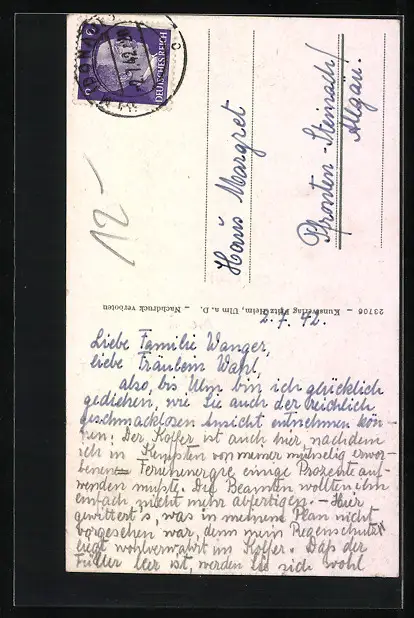 DEUTSCHES REICH
12-
Haus Margret
Pfronten-Steinach/
Allgäu.
23706 – Kunstverlag Fritz Helm, Ulm a. D. – Nachdruck verboten
2.7.42.
Liebe Familie Wanger,
liebe Fräulein Wahl,
also, bis Ulm bin ich glücklich
gediehen, wie Sie auch der reichlich
geschmacklosen Ansicht entnehmen kön-
nen. Der Koffer ist auch hier, nachdem
ich in Kempten von meiner mühselig erwor-
benen Ferienenergie einige Prozente auf-
wenden mußte. Die Beamten wollten ihn
einfach nicht mehr abfertigen. – Hier
gewittert's, was in meinem Plan nicht
vorgesehen war, denn mein Regenschutz
liegt wohlverwahrt im Koffer. Daß der
Füller leer ist, werden Sie sich wohl